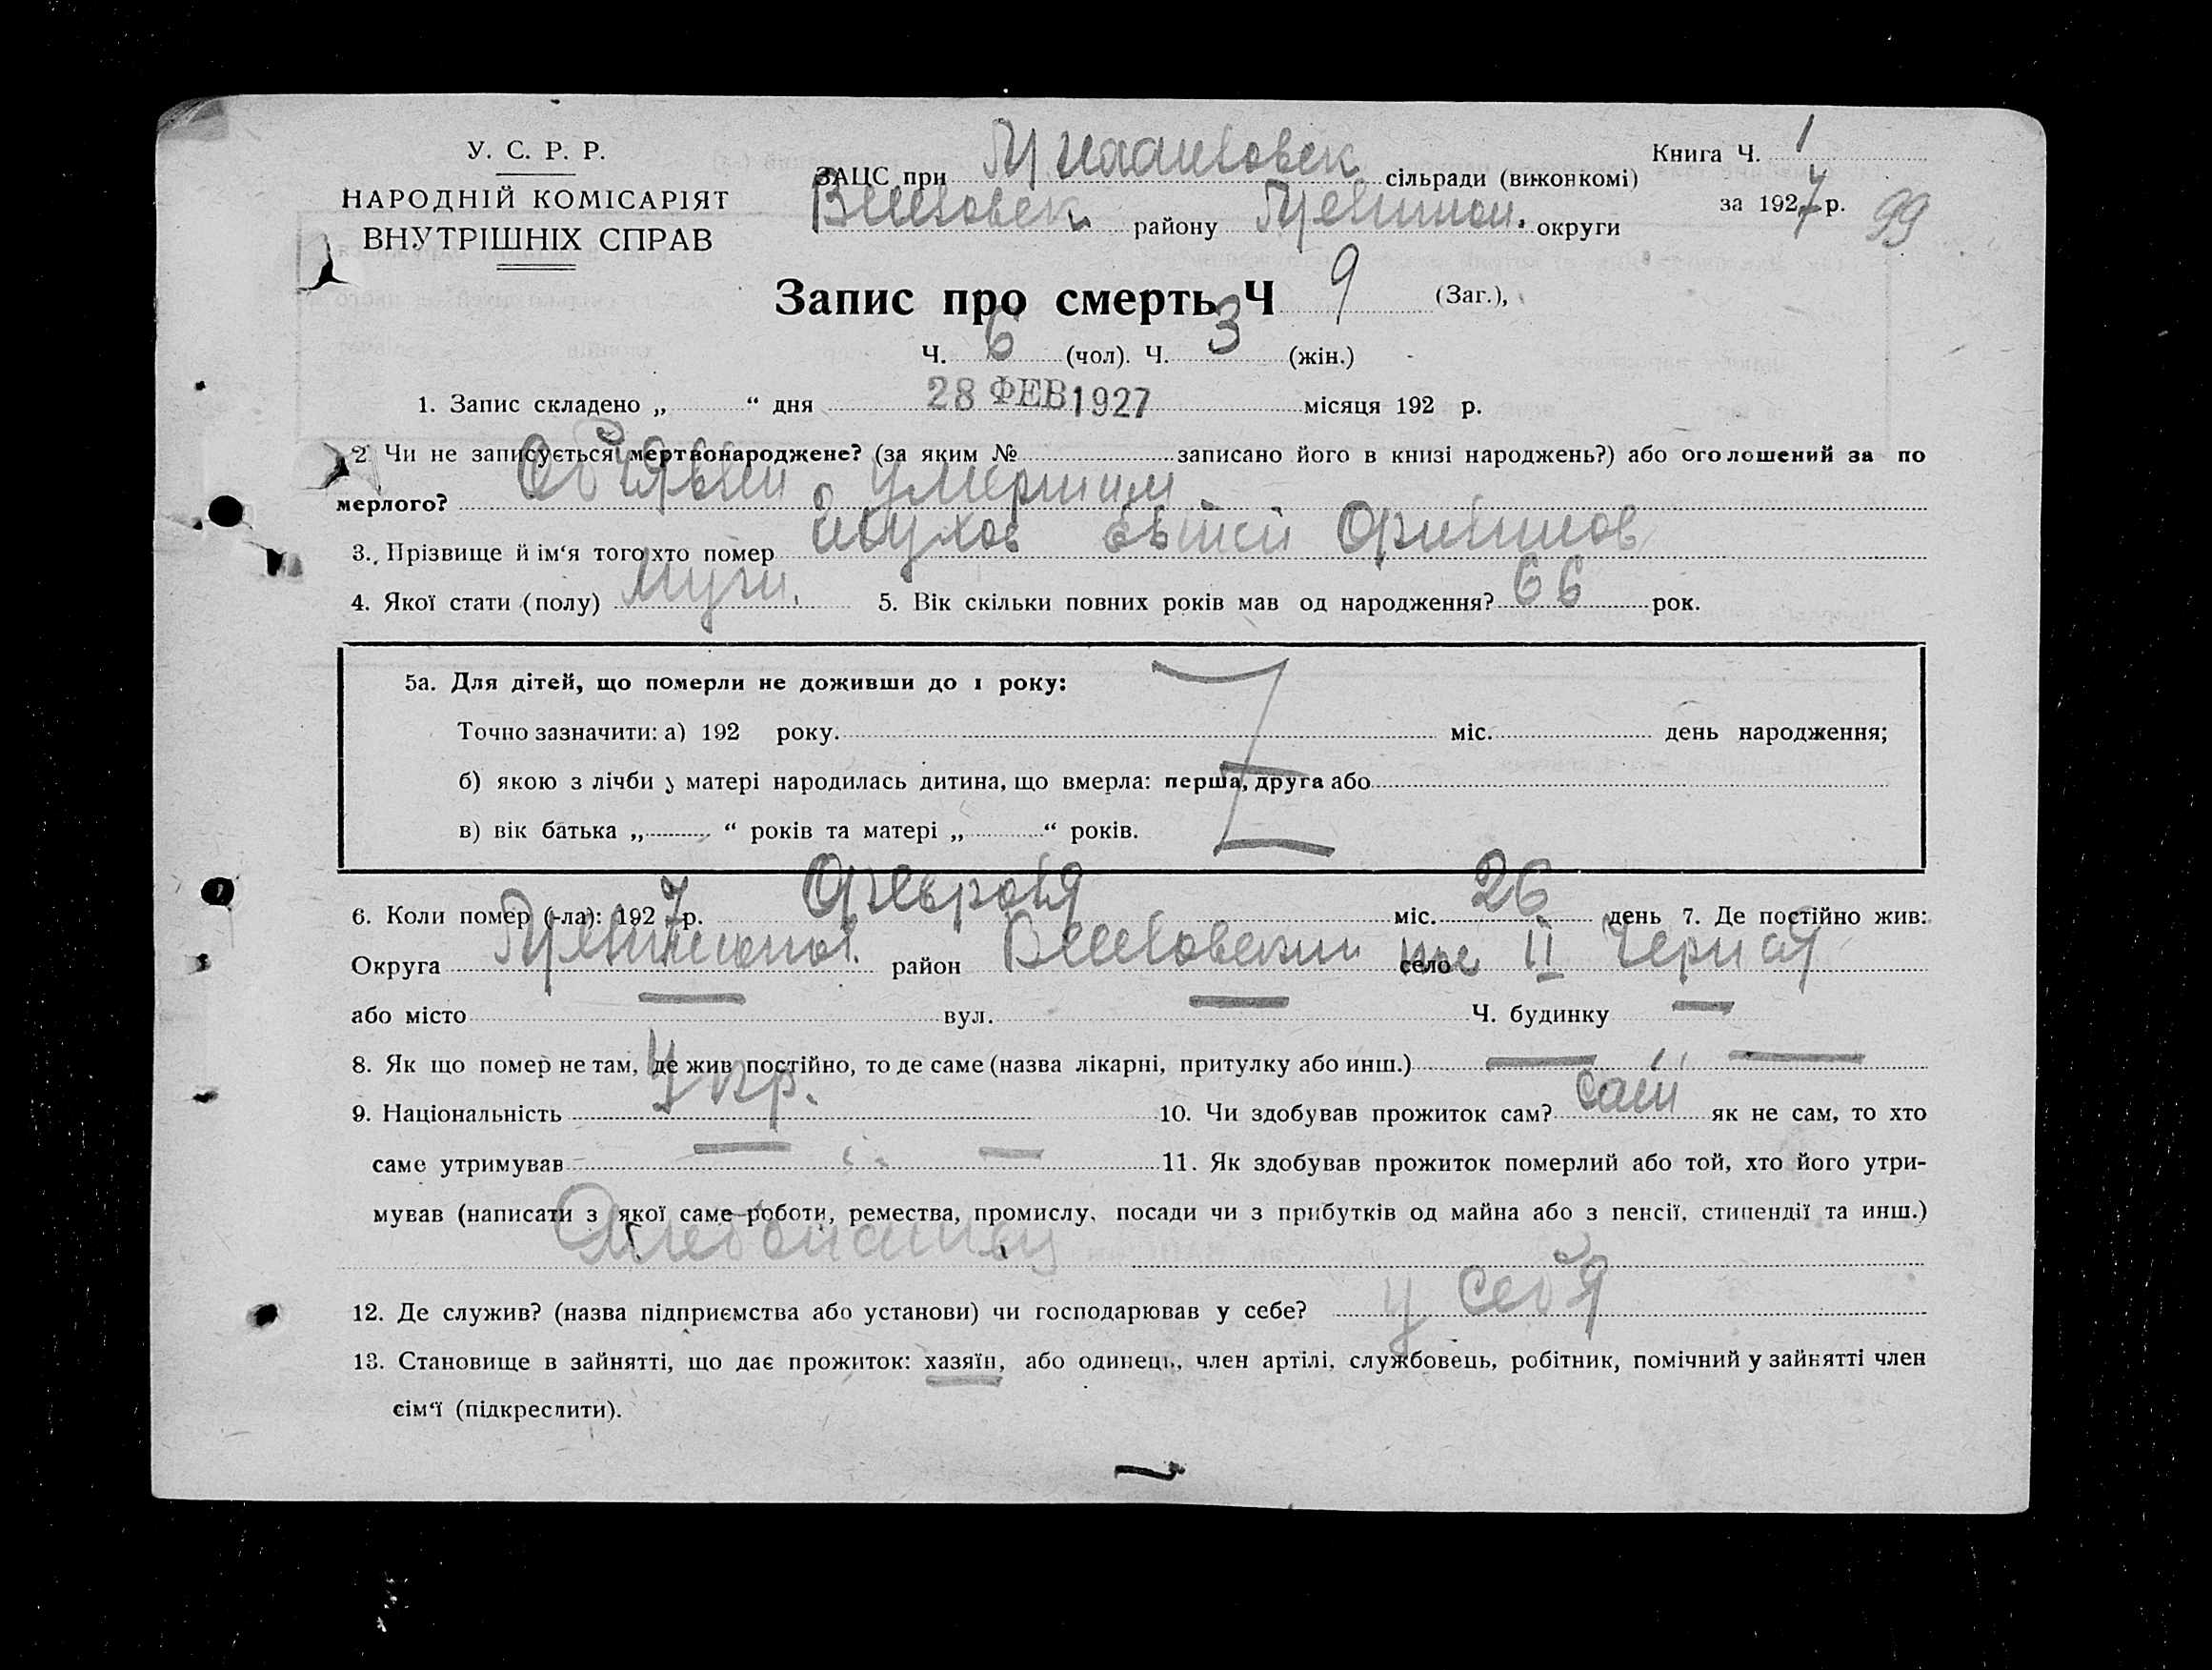 У. С. Р. Р.
НАРОДНІЙ КОМІСАРІЯТ
ВНУТРІШНІХ СПРАВ
Книга Ч. 1
за 1927 р. 99
ЗАЦС при сільради (виконкомі)
району округи
Запис про смерть Ч 9 (Заг.),
Ч. 6 (чол). Ч. 3 (жін.)
1. Запис складено „ “ дня 28 ФЕВ 1927 місяця 192 р.
2 Чи не записується мертвонароджене? (за яким № записано його в книзі народжень?) або оголошений за по
мерлого? умершим
3. Прізвище й ім‘я того хто помер
4. Якої стати (полу) муж. 5. Вік скільки повних років мав од народження? 66 рок.
5а. Для дітей, що померли не доживши до 1 року:
Точно зазначити: а) 192 року. міс. день народження;
б) якою з лічби у матері народилась дитина, що вмерла: перша, друга або
в) вік батька „ “ років та матері „ “ років.
6. Коли помер (-ла): 1927 р. Февраля міс. 26 день 7. Де постійно жив:
Округа район село II Черная
або місто — вул. — Ч. будинку —
8. Як що помер не там, де жив постійно, то де саме (назва лікарні, притулку або инш.) — —
9. Національність Укр. 10. Чи здобував прожиток сам? сам як не сам, то хто
саме утримував — — 11. Як здобував прожиток померлий або той, хто його утри-
мував (написати з якої саме роботи, ремества, промислу, посади чи з прибутків од майна або з пенсії, стипендії та инш.)
12. Де служив? (назва підприємства або установи) чи господарював у себе? у себя
13. Становище в зайнятті, що дає прожиток: хазяїн, або одинець, член артілі, службовець, робітник, помічний у зайнятті член
сім‘ї (підкреслити).